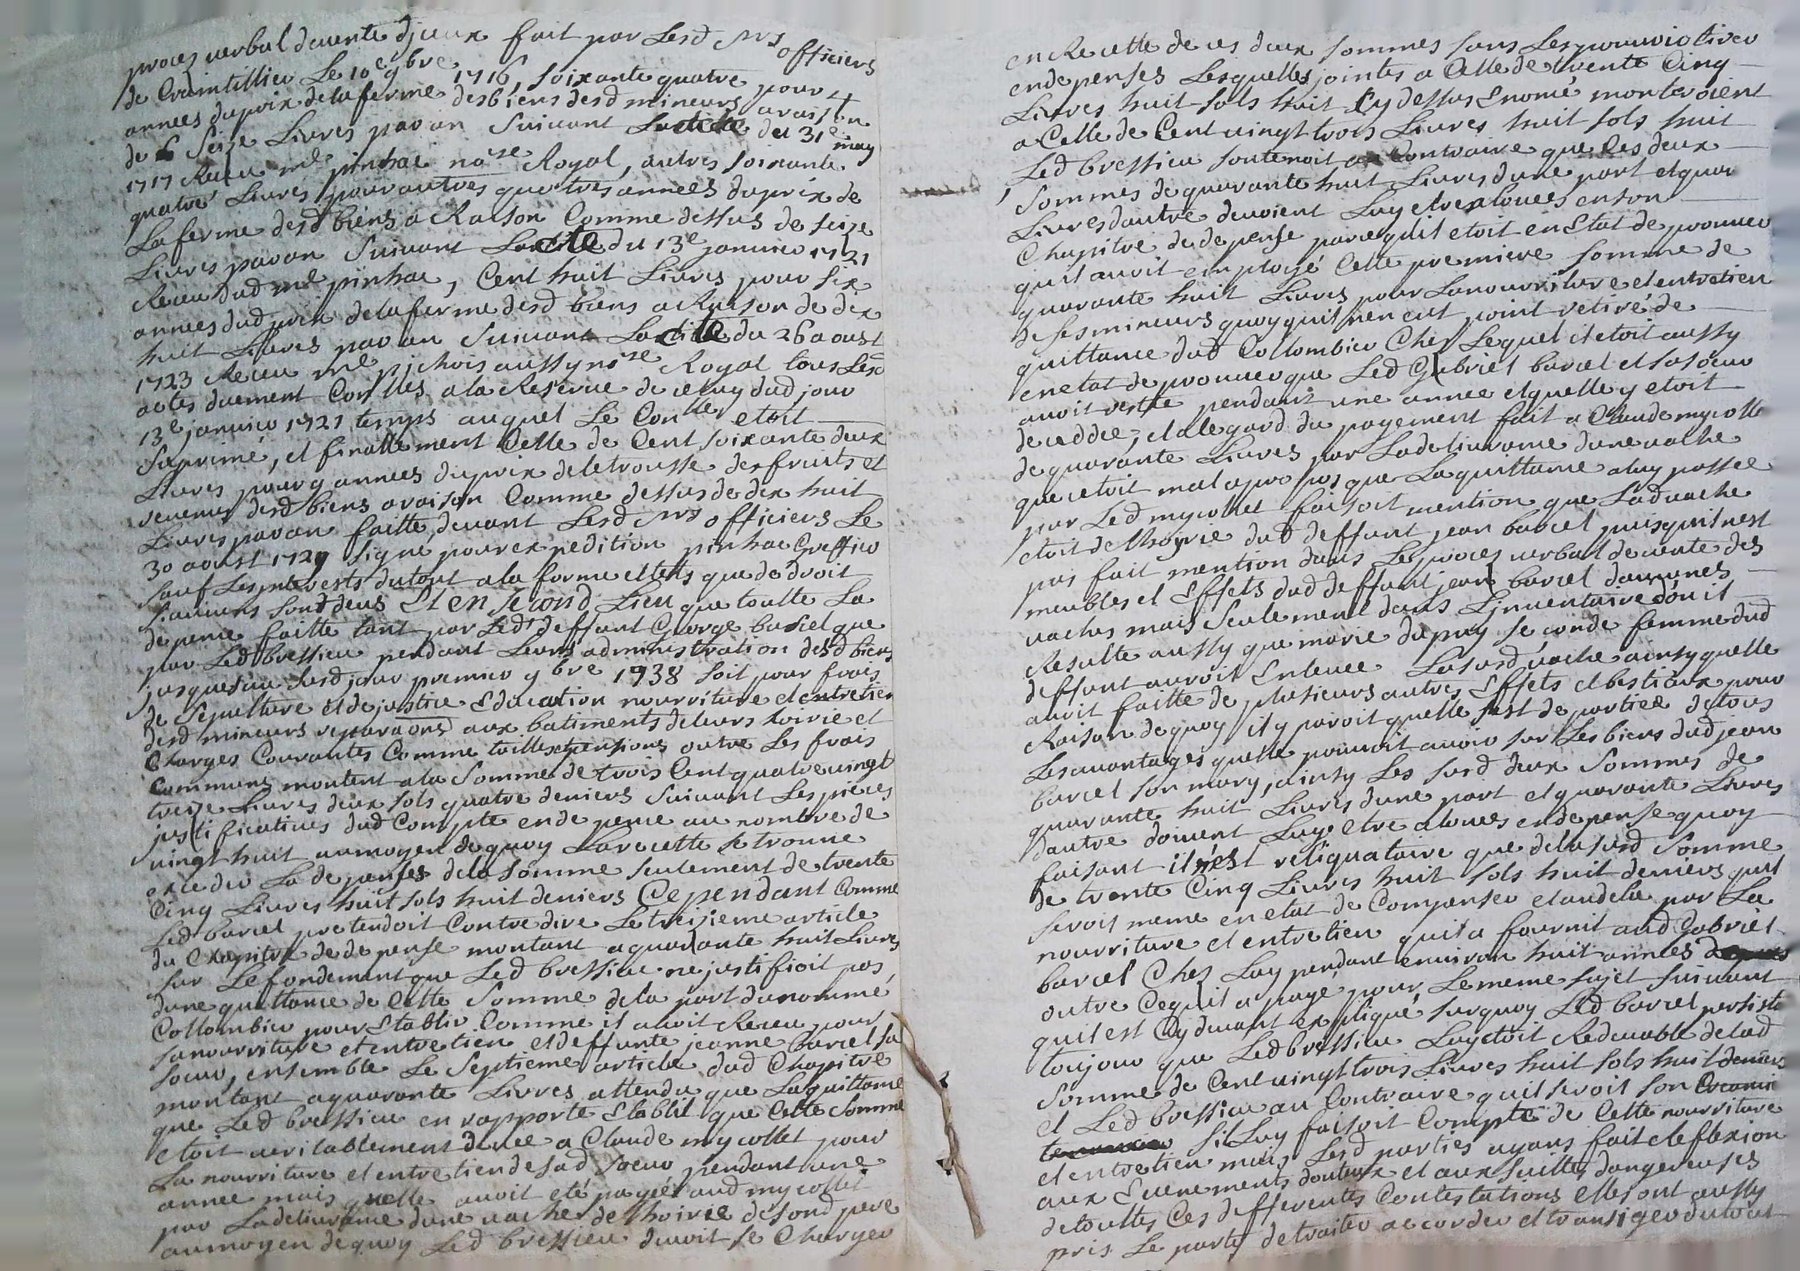 proces verbal de vente d'jceux fait par Lesd Srs officiers
de Craintillieu Le 10e 9bre 1716, soixante quatre pour 4
années du prix de la ferme desbiens desd mineurs araison
de Seize Livres par an Suivant Lacte du 31e may
1717 Receu me pinhac nore Royal, autres soixante
quatre Livres pour autres quattres années duprix de
La ferme desd biens a Raison Comme dessus de seize
Livres par an Suivant Lacte du 13e janvier 1721
Receu dud me pinhac, Cent huit Livres pour six
années dud prix delaferme desd biens a Raison de dix
huit Livres par an Suivant Lacte du 26 aoust
1723 Receu me pichois aussy nore Royal tous Lesd
actes duement Conlles ala Reserve de celuy dud jour
13e janvier 1721 temps auquel Le Conlle etoit
Suprimé, et finallement Celle de Cent soixante deux
Livres pour 9 années duprix deletrousse des fruits et
revenus desd biens araison Comme dessus de dix huit
Livres par an faitte devant Lesd Srs officiers Le
30 aoust 1729 signé pour expedition pinhac Greffier
sauf Lesinterests dutout ala forme et tels que de droit
Et en second Lieu que toutte La
depence faitte tant par Led deffunt George barcel que
par Led bressieu pendant Leurs administration desd biens
jusquesau susd jour premier 9bre 1738 soit pour frais
de Sepulture et de justice Education nourriture et entretien
desd mineurs reparaons aux batiments deleurs hoirie et
Charges Courantes Comme tailles pensions outre Les frais
Communs montent ala Somme de trois Cent quatre vingt
treize Livres deux sols quatre deniers suivant Les pieces
justificatives dud Compte endepence au nombre de
vingt huit aumoyen dequoy Larecette se trouve
exceder La depense dela somme seulement de trente
Cinq Livres huit sols huit deniers Cependant Comme
Led barcel pretendoit Contredire Letreizieme article
du Chapitre de depense montant aquarante huit Livres
sur Lefondement que Led bressieu nejustifioit pas
dune quittance de Cette somme dela part dunommé
Collombier pour Etablir Comme il avoit Receu pour
sanourriture et entretien et deffunte jeanne barcel sa
soeur, ensemble Le Septieme article dud Chapitre
montant aquarante Livres attendu que Laquittance
que Led bressieu en rapporte Etablit que Cette somme
etoit veritablement deuee a Claude mycollet pour
La nourriture et entretien de sad soeur pendant une
année mais quelle avoit eté payée aud mycollet
par La delivrance dune vache de lhoirie desond pere
aumoyen dequoy Led bressieu devoit se Charger
en Recette de ces deux sommes sans Lespouvoir tirer
endepenses Lesquelles jointes a Celle de trente Cinq
Livres huit sols huit Cydessus Enoncé monteroient
a Celle de Cent vingt trois Livres huit sols huit
Led bressieu soutenoit au Contraire que Ces deux
Sommes de quarante huit Livres dune part et quar
Livres dautre devoient Luy etre alouees enson
Chapitre de depense parcequil etoit en Etat de prouver
quil avoit employé Cette premiere somme de
quarante huit Livres pour Lanourriture et entretien
de ses mineurs quoy quil nen eut point retiré de
quittance dud Collombier Chez Lequel il etoit aussy
en etat de prouver que Led Gabriel barcel et sa soeur
avoit resté pendant une année et quelle y etoit
decedée; et alegard du payement fait a Claude mycollet
de quarante Livres par La delivrance dune vache
que cetoit mal apropos que Laquittance aluy passée
par Led mycollet faisoit mention que Ladvache
etoit de lhoyrie dud deffunt jean barcel puisquil nest
pas fait mention dans Les proces verbal devente des
meubles et Effets dud deffunt jean barcel daucunes
vaches mais seulement dans Linventaire dou il
Resulte aussy que marie dupuy seconde femme dud
deffunt avoit Enlevee La susd vache ainsy quelle
avoit faitte de plusieurs autres Effets et bestiaux pour
Raison dequoy il y paroit quelle sest departiee detous
Lesavantages quelle pouvoit avoir sur Les biens dud jean
barcel son mary, ainsy Les susd deux sommes de
quarante huit Livres dune part et quarante Livres
dautre doivent Luy etre alouees endepense quoy
faisant il nest reliquataire que dela susd somme
de trente Cinq Livres huit sols huit deniers quil
seroit meme en etat de Compenser et audela par La
nourriture et entretien quil a fournit aud Gabriel
barcel Chez Luy pendant environ huit années
outre Cequil a payé pour Le meme sujet suivant
quil est Cy devant expliqué surquoy Led barcel persiste
toujour que Led bressieu Luyetoit Redevable de lad
somme de Cent vingt trois Livres huit sols huit deniers
et Led bressieu au Contraire quil seroit son Creancier
sil Luy faisoit Compte de Cette nourriture
et entretien mais Lesd parties ayans fait reflexion
aux Evenements douteux et aux suittes dangereuses
detouttes Ces differentes Contestations elles ont aussy
pris Le party de traiter accorder et transiger dutout